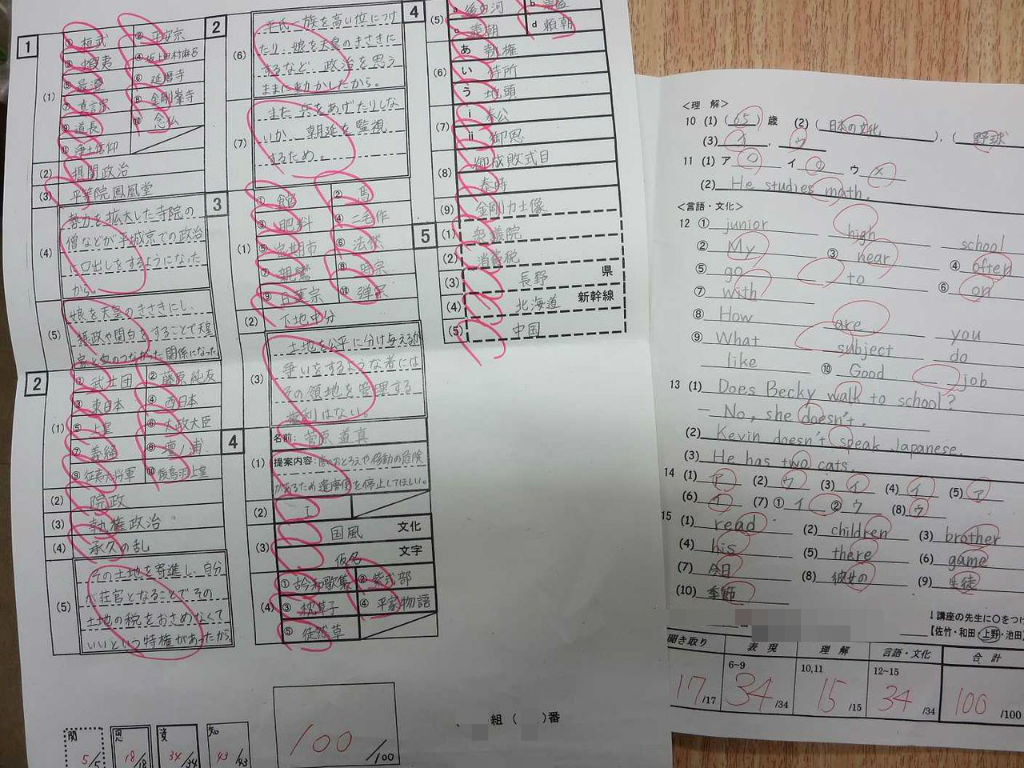 1
(1)
① 桓武
② 平安京
④ 坂上田村麻呂
⑤ 最澄
⑥ 延暦寺
⑦ 真言宗
⑧ 金剛峯寺
⑨ 道長
⑩ 念仏
⑪ 浄土信仰
(2) 摂関政治
(3) 平等院鳳凰堂
(4)
勢力を拡大した寺院の
僧などが平城京での政治
に口出しをするようになった
から。
(5)
娘を天皇のきさきにし、
摂政や関白をすることで天皇
2
(1)
① 武士団
② 藤原純友
③ 東日本
④ 西日本
⑤ 上皇
⑥ 太政大臣
⑧ 壇ノ浦
⑨ 征夷大将軍
⑩ 後鳥羽上皇
(2) 院政
(3) 執権政治
(4) 承久の乱
(5)
その土地を寄進し、自分
が荘官となることでその
土地の税をおさめなくて
いいという特権があったから
2
(6)
一族を高い位につけ
たり、娘を天皇のきさきに
するなど、政治を思う
ままに動かしたから。
(7)
また、兵をあげたりしな
いか、朝廷を監視
するため。
3
(1)
① 領
② 馬
③ 肥料
④ 二毛作
⑤ 定期市
⑥ 法然
⑧ 時宗
⑨ 日蓮宗
⑩ 禅宗
(2) 下地中分
(3)
土地を公平に分け与える
争いをするような者には
その領地を管理する
権利はない。
4
(1)
名前: 菅原道真
提案内容: 唐のおとろえや移動の危険
があるため遣唐使を停止してほしい。
(2) エ
(3)
国風 文化
仮名 文字
(4)
① 古今和歌集
② 紫式部
③ 枕草子
④ 平家物語
⑤ 徒然草
4
(5)
a 後白河
b
c
d 頼朝
(6)
あ 執権
い 侍所
う 地頭
(7)
i 奉公
ii 御恩
(8)
御成敗式目
泰時
(9) 金剛力士像
5
(1) 衆議院
(2) 消費税
(3) 長野 県
(4) 北海道 新幹線
(5) 中国
組( )番
5/5
18/18
34/34
43/43
100 /100
<理 解>
10 (1) ( 65 ) 歳 (2) ( 日本の文化 ), ( 野球
(3) イ , ウ
11 (1) ア ○ イ ○ ウ ×
(2) He studies math.
<言語・文化>
12 ① junior high school
② My ③ near ④ often
⑤ go to ⑥ on
⑦ with
⑧ How are you
⑨ What subject do
like ⑩ Good job
13 (1) Does Becky walk to school?
— No, she doesn't.
(2) Kevin doesn't speak Japanese.
(3) He has two cats.
14 (1) ア (2) ウ (3) イ (4) イ (5) ア
(6) イ (7) ① イ ② ウ (8) ウ
15 (1) read (2) children (3) brother
(4) his (5) there (6) game
(7) 今日 (8) 彼女の (9) 生徒
(10) 季節
↓講座の先生に○をつけ
【佐竹・和田・上野・池田
聞き取り 表 現 理 解 言語・文化 合 計
6~9 10,11 12~15
17 /17 34 /34 15 /15 34 /34 100 /100